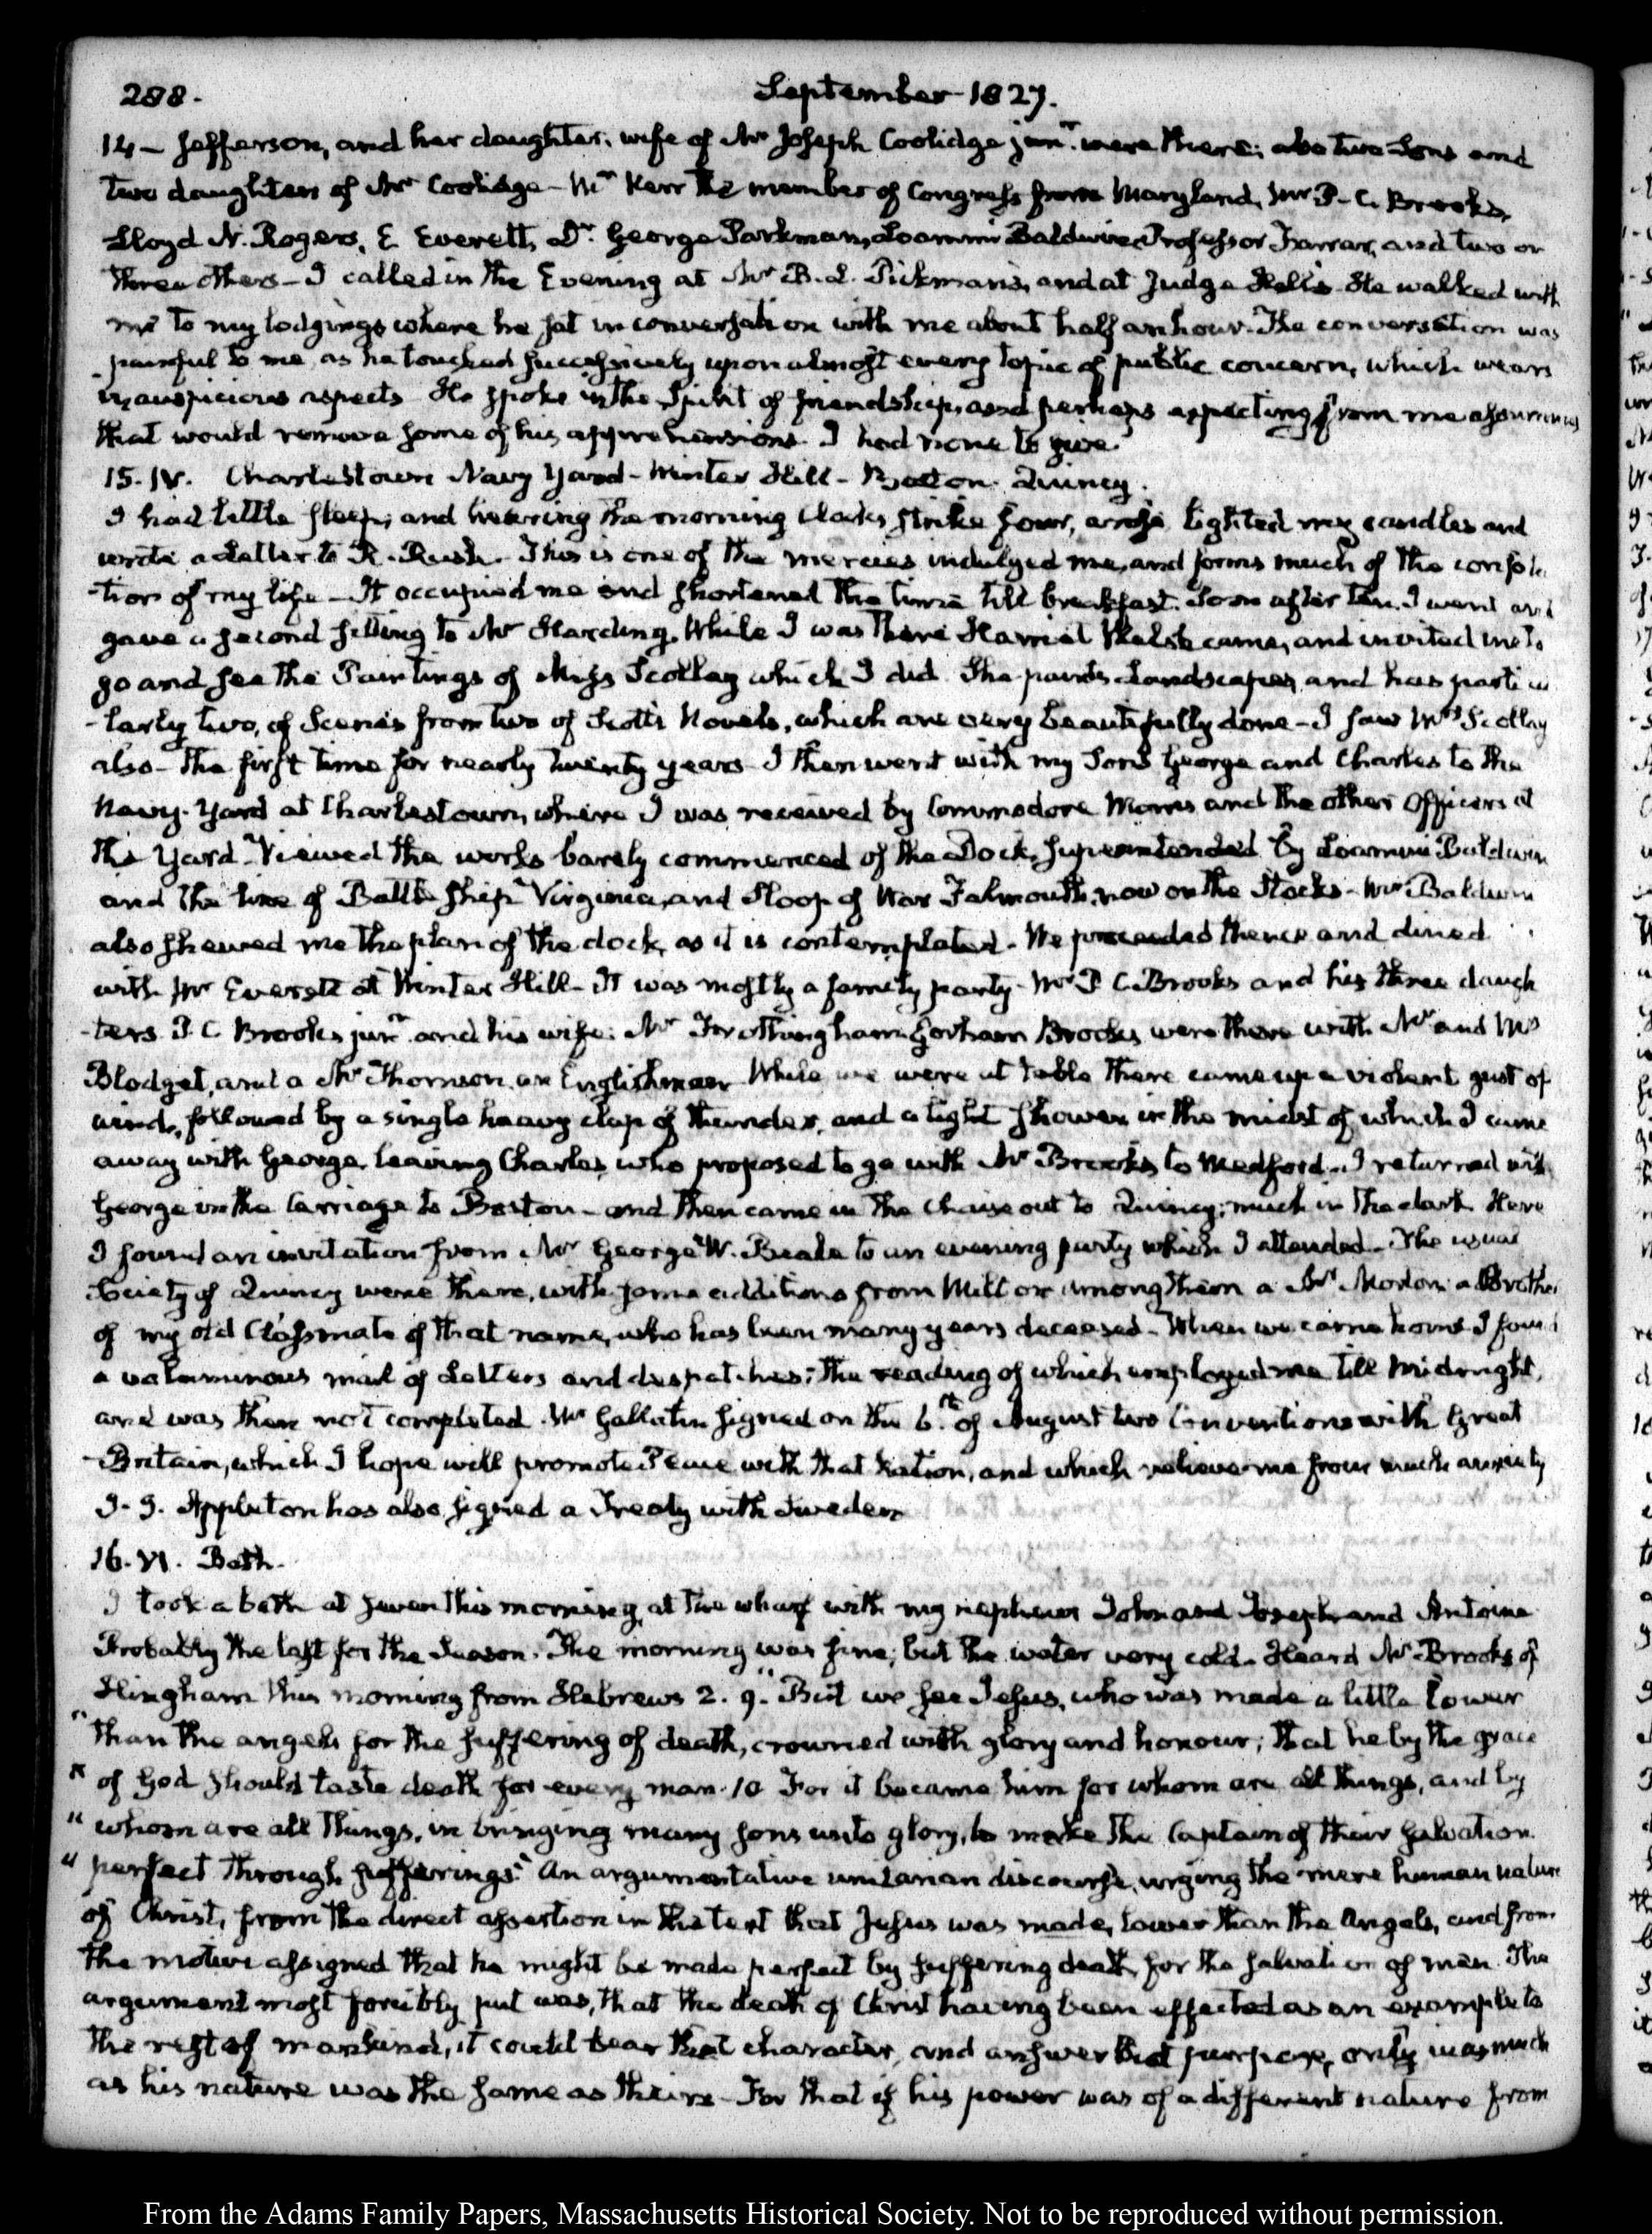 288.
September 1827.
14 — Jefferson, and her daughter, wife of Mr Joseph Coolidge junr. were there; also two Sons and
two daughters of Mr Coolidge — Mr Kerr the member of Congress from Maryland, Mr P. C. Brooks,
Lloyd N. Rogers, E Everett, Dr. George Parkman, Loammi Baldwin, Professor Farrar, and two or
three others — I called in the Evening at Mr B. L. Pickman's, and at Judge Hall's. He walked with
me to my lodgings where he sat in conversation with me about half an hour. The conversation was
painful to me, as he touched successively upon almost every topic of public concern, which wears
inauspicious aspects. He spoke in the Spirit of friendship, and perhaps expecting from me assurances
that would remove some of his apprehensions. I had none to give.
15. IV. Charlestown Navy Yard — Winter Hill — Boston. Quincy.
I had little sleep; and hearing the morning Clocks strike four, arose lighted my candles and
wrote a Letter to R. Rush. This is one of the mercies indulged me, and forms much of the consola
-tion of my life — It occupied me and shortened the time till breakfast. Soon after ten I went and
gave a second sitting to Mr Harding. While I was there Harriet Welsh came, and invited me to
go and see the Paintings of Miss Scollay which I did. She paints Landscapes, and has particu
-larly two, of Scenes from two of Scott's Novels, which are very beautifully done — I saw Mrs Scollay
also — the first time for nearly twenty years. I then went with my Sons George and Charles to the
Navy-Yard at Charlestown, where I was received by Commodore Morris and the other Officers at
the Yard. Viewed the works barely commenced of the Dock, superintended by Loammi Baldwin
and the line of Battle Ship Virginia, and Sloop of War Falmouth, now on the Stocks — Mr Baldwin
also shewed me the plan of the dock, as it is contemplated. We proceeded thence and dined
with Mr Everett at Winter Hill — It was mostly a family party — Mr P C. Brooks and his three daugh
-ters. P. C. Brooks junr. and his wife. Mr Frothingham Gorham Brooks were there with Mr and Mrs
Blodget, and a Mr Thomson an Englishman. While we were at table there came up a violent gust of
wind, followed by a single heavy clap of thunder, and a light shower in the midst of which I came
away with George, leaving Charles who proposed to go with Mr Brooks to Medford. I returned with
George in the Carriage to Boston — and then came in the Chaise out to Quincy; much in the dark. Here
I found an invitation from Mr George W. Beale to an evening party which I attended. The usual
Society of Quincy were there, with some additions from Milton among them a Mr Morton a Brother
of my old Classmate of that name, who has been many years deceased. When we came home I found
a voluminous mail of Letters and despatches; the reading of which employed me till Midnight,
and was then not completed. Mr Gallatin signed on the 6th. of August two Conventions with Great
Britain, which I hope will promote Peace with that Nation, and which relieve me from much anxiety
J. J. Appleton has also signed a Treaty with Sweden
16. VI. Bath.
I took a bath at seven this morning, at the wharf with my nephews John and Joseph and Antoine
Probably the last for the Season. The morning was fine; but the water very cold. Heard Mr Brooks of
Hingham this morning from Hebrews 2. 9. "But we see Jesus, who was made a little lower
"than the angels for the suffering of death, crowned with glory and honour; that he by the grace
"of God should taste death for every man. 10 For it became him for whom are all things, and by
"whom are all things, in bringing many sons unto glory, to make the Captain of their salvation
"perfect through sufferings." An argumentative unitarian discourse, urging the mere human nature
of Christ, from the direct assertion in the text that Jesus was made, lower than the Angels, and from
the motive assigned that he might be made perfect by suffering death, for the salvation of men. The
argument most forcibly put was, that the death of Christ having been effected as an example to
the rest of mankind, it could bear that character, and answer that purpose, only inasmuch
as his nature was the same as theirs — For that if his power was of a different nature from
From the Adams Family Papers, Massachusetts Historical Society. Not to be reproduced without permission.